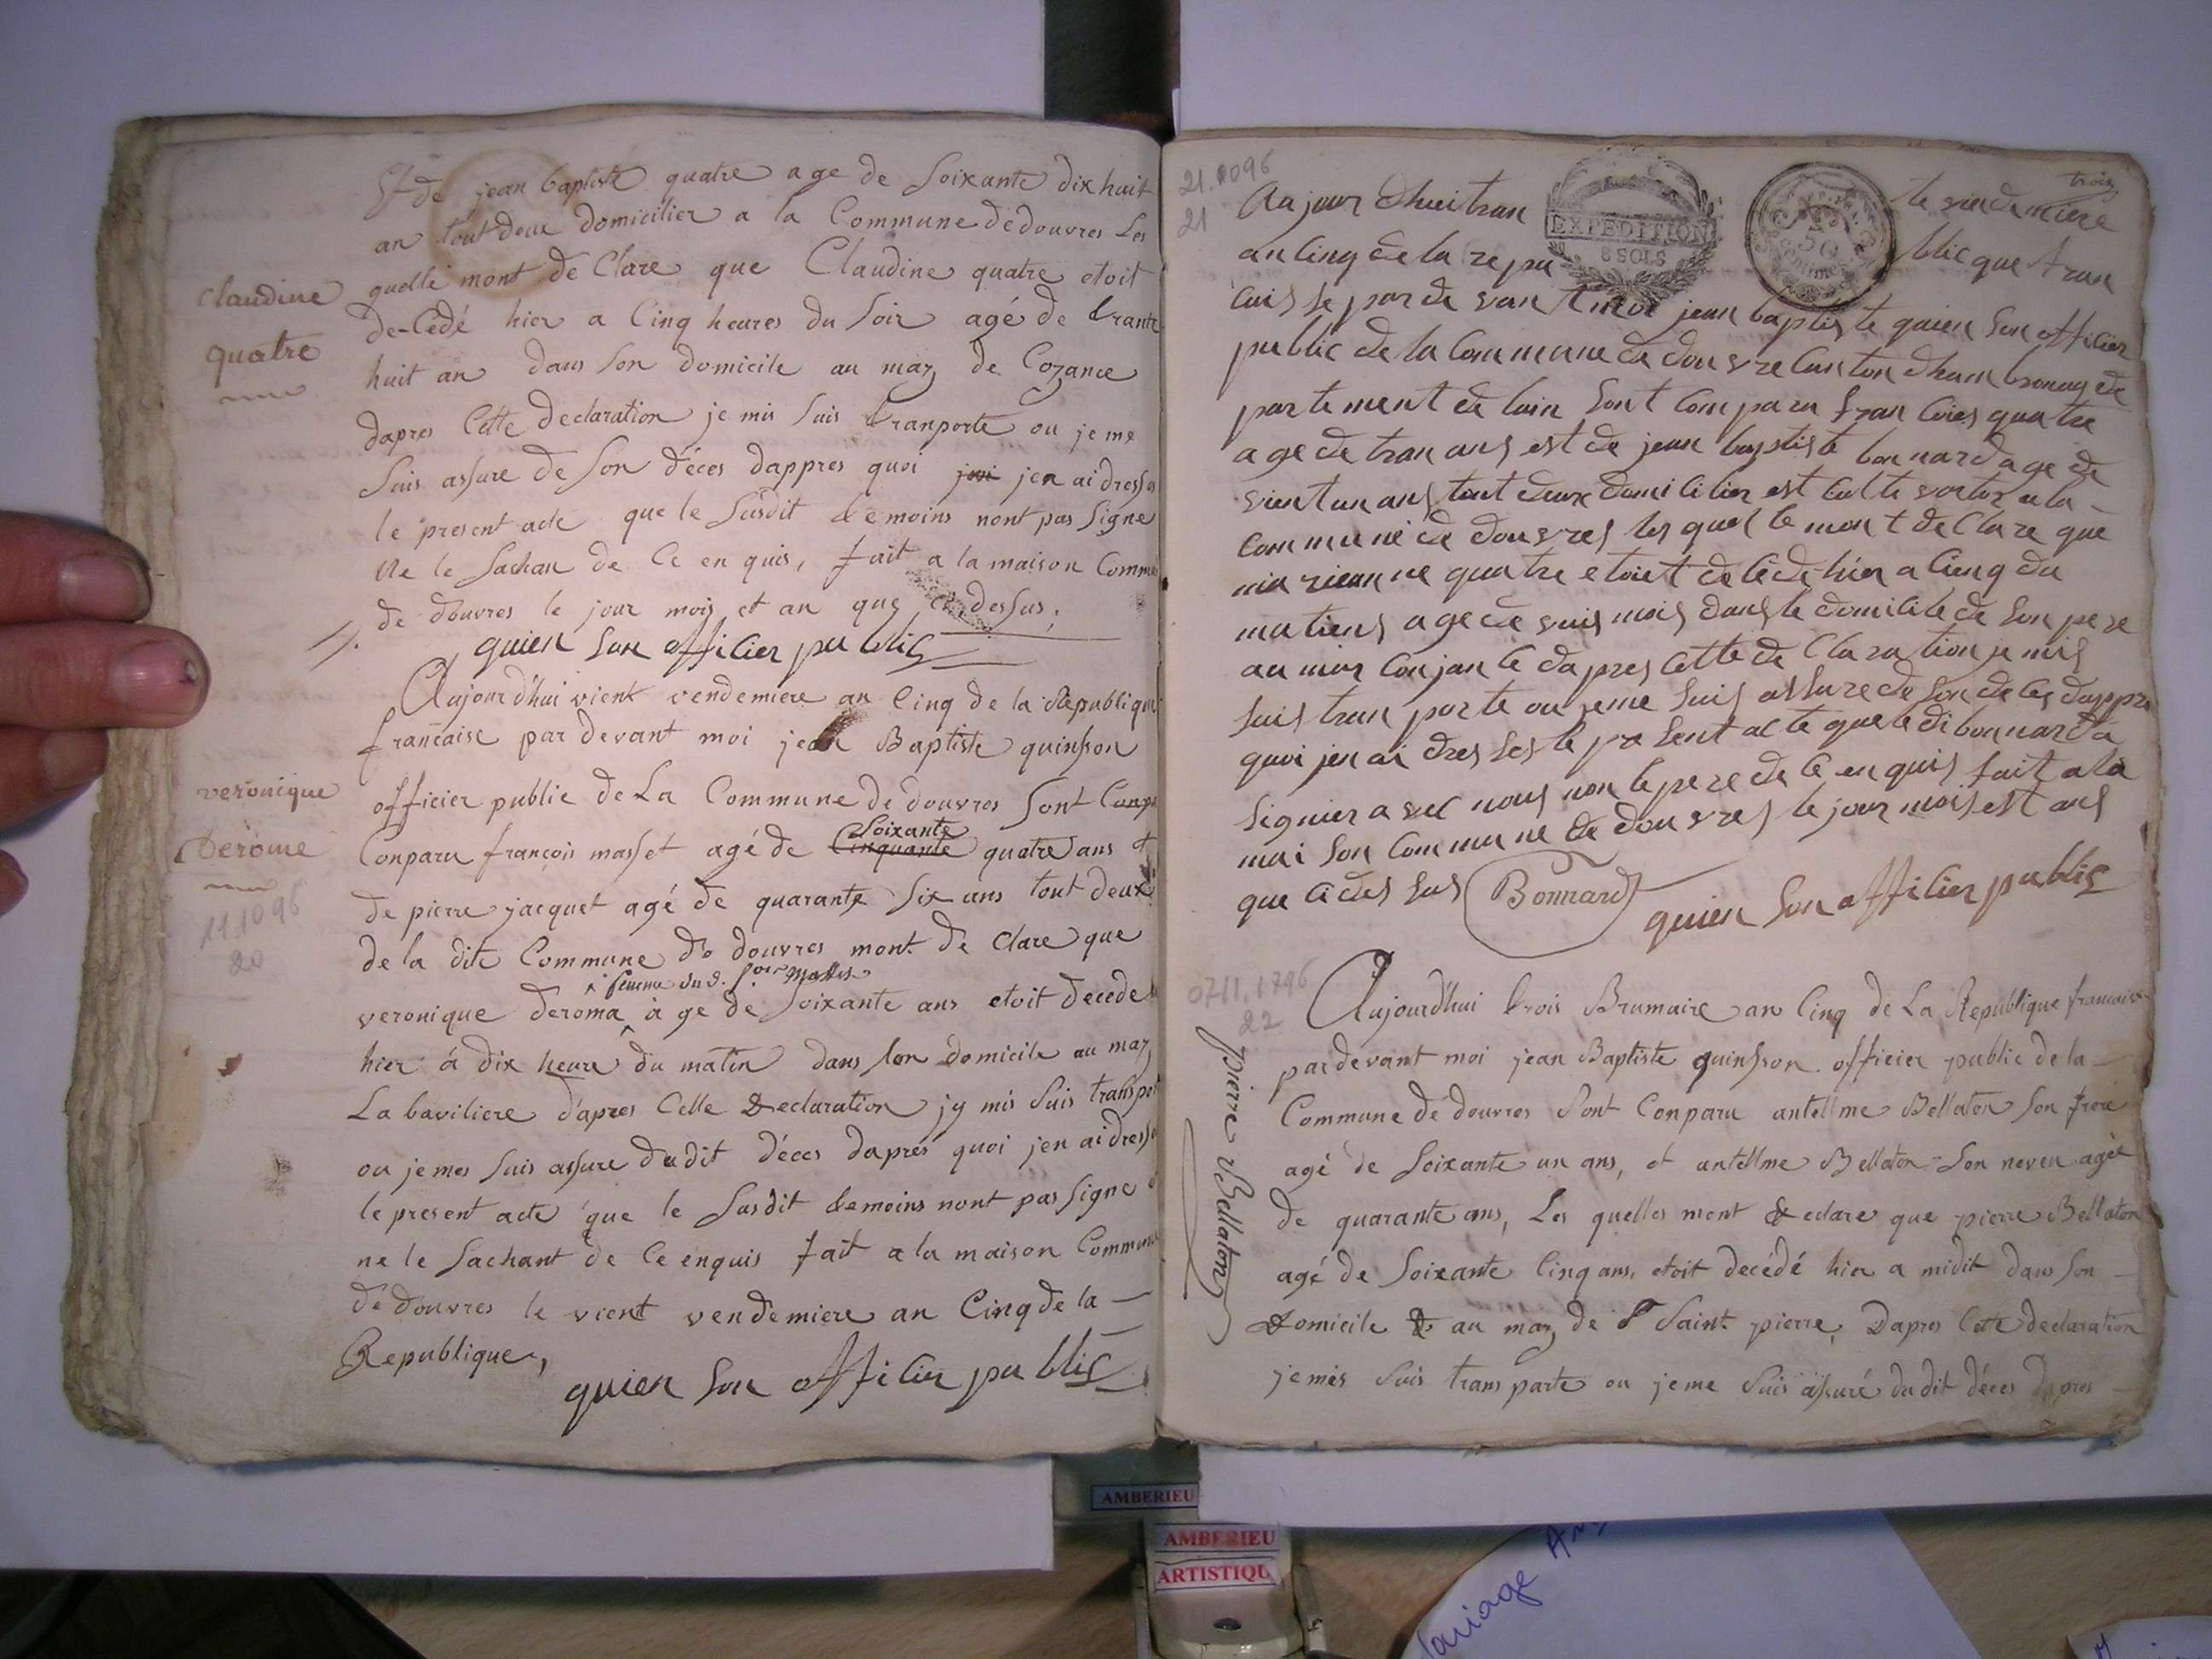 Et de jean baptiste quatre age de Soixante dix huit
an tout deux domicilier a la Commune de douvres Les
quelle mont de Clare que Claudine quatre etoit
de-Cédé hier a Cinq heures du Soir agé de trante
huit an dans Son domicile au mas de Cozance
dapres Cette declaration je mis Suis tranporte ou je me
Suis assure de Son déces dappres quoi jen ai dresse
le present acte que le Susdit temoins nont pas Signe
Ne le Sachan de Ce en quis, fait a la maison Commu
de douvres le jour mois et an que ci dessus,
quien Son officier publis
Claudine
quatre
Aujourd'hui vient vendemiere an Cinq de la Republique
francaise par devant moi jean Baptiste quinsson
officier public de La Commune de douvres Sont Conpa
Conparu françois masset agé de Cinquante Soixante quatre ans et
de pierre jacquet agé de quarante Six ans tout deux
de la dite Commune de douvres mont de Clare que
femme du d. masset
veronique deroma à ge de Soixante ans etoit decede
hier á dix heure du matin dans Son domicile au mas
La baviliere d'apres Cette declaration jy mis Suis transpor
ou je mes Suis assure du dit déces daprés quoi jen ai dresse
le present acte que le Susdit temoins nont pas Signe
ne le Sachant de Ce enquis fait a la maison Commune
de douvres le vient vendemiere an Cinq de la
Republique,
quien Son officier publis
veronique
Derome
11.1096
20
21.1096
21
trois
Aujour dhui tran te vindemiere
EXPEDITION
8 SOLS
50
an Cinq de la repu blicque fran
Cuis se par de vant moi jean baptiste quien Son officier
public de la Commune de douvre Canton dhambronay de
partement de lain Sont Comparu fran Cois quatre
age de tran ans est de jean baptiste bonnard age de
vient un ans tout deux domicilier est Culte vortor a la
Commune de douvres les quel le mont de Clare que
mia rieanne quatre etoiet de Cédé hier a Cinq du
matiens age de suis mois dans le domicile de Son pere
au mas Conjan Ce dapres Cette de Claration je mis
Suis tran porte ou jeme Suis assure de Son de Ces dappre
quoi jen ai dres ses le pre Sent acte que le di bonnard a
Signier a vec nous non le pere de Ce en quis fait a la
mai Son Commune de douvres le jour mois est ans
que Cides Sus Bonnard
quien Son officier publis
0711.1796
22
pierre Bellaton
Aujourd'hui trois Brumaire an Cinq de La Republique francaise
par devant moi jean Baptiste quinsson officier public de la
Commune de douvres Sont Conparu antellme Bellaton Son frere
agé de Soixante un ans, et antellme Bellaton Son neveu agét
de quarante ans, Les quelles mont declare que pierre Bellaton
agé de Soixante Cinq ans, etoit decédé hier a midit dans Son
domicile au mas de Saint pierre, Dapres Cette declaration
je mis Suis trans parte ou je me Suis assuré du dit déces dapres
AMBERIEU
AMBERIEU
ARTISTIQU